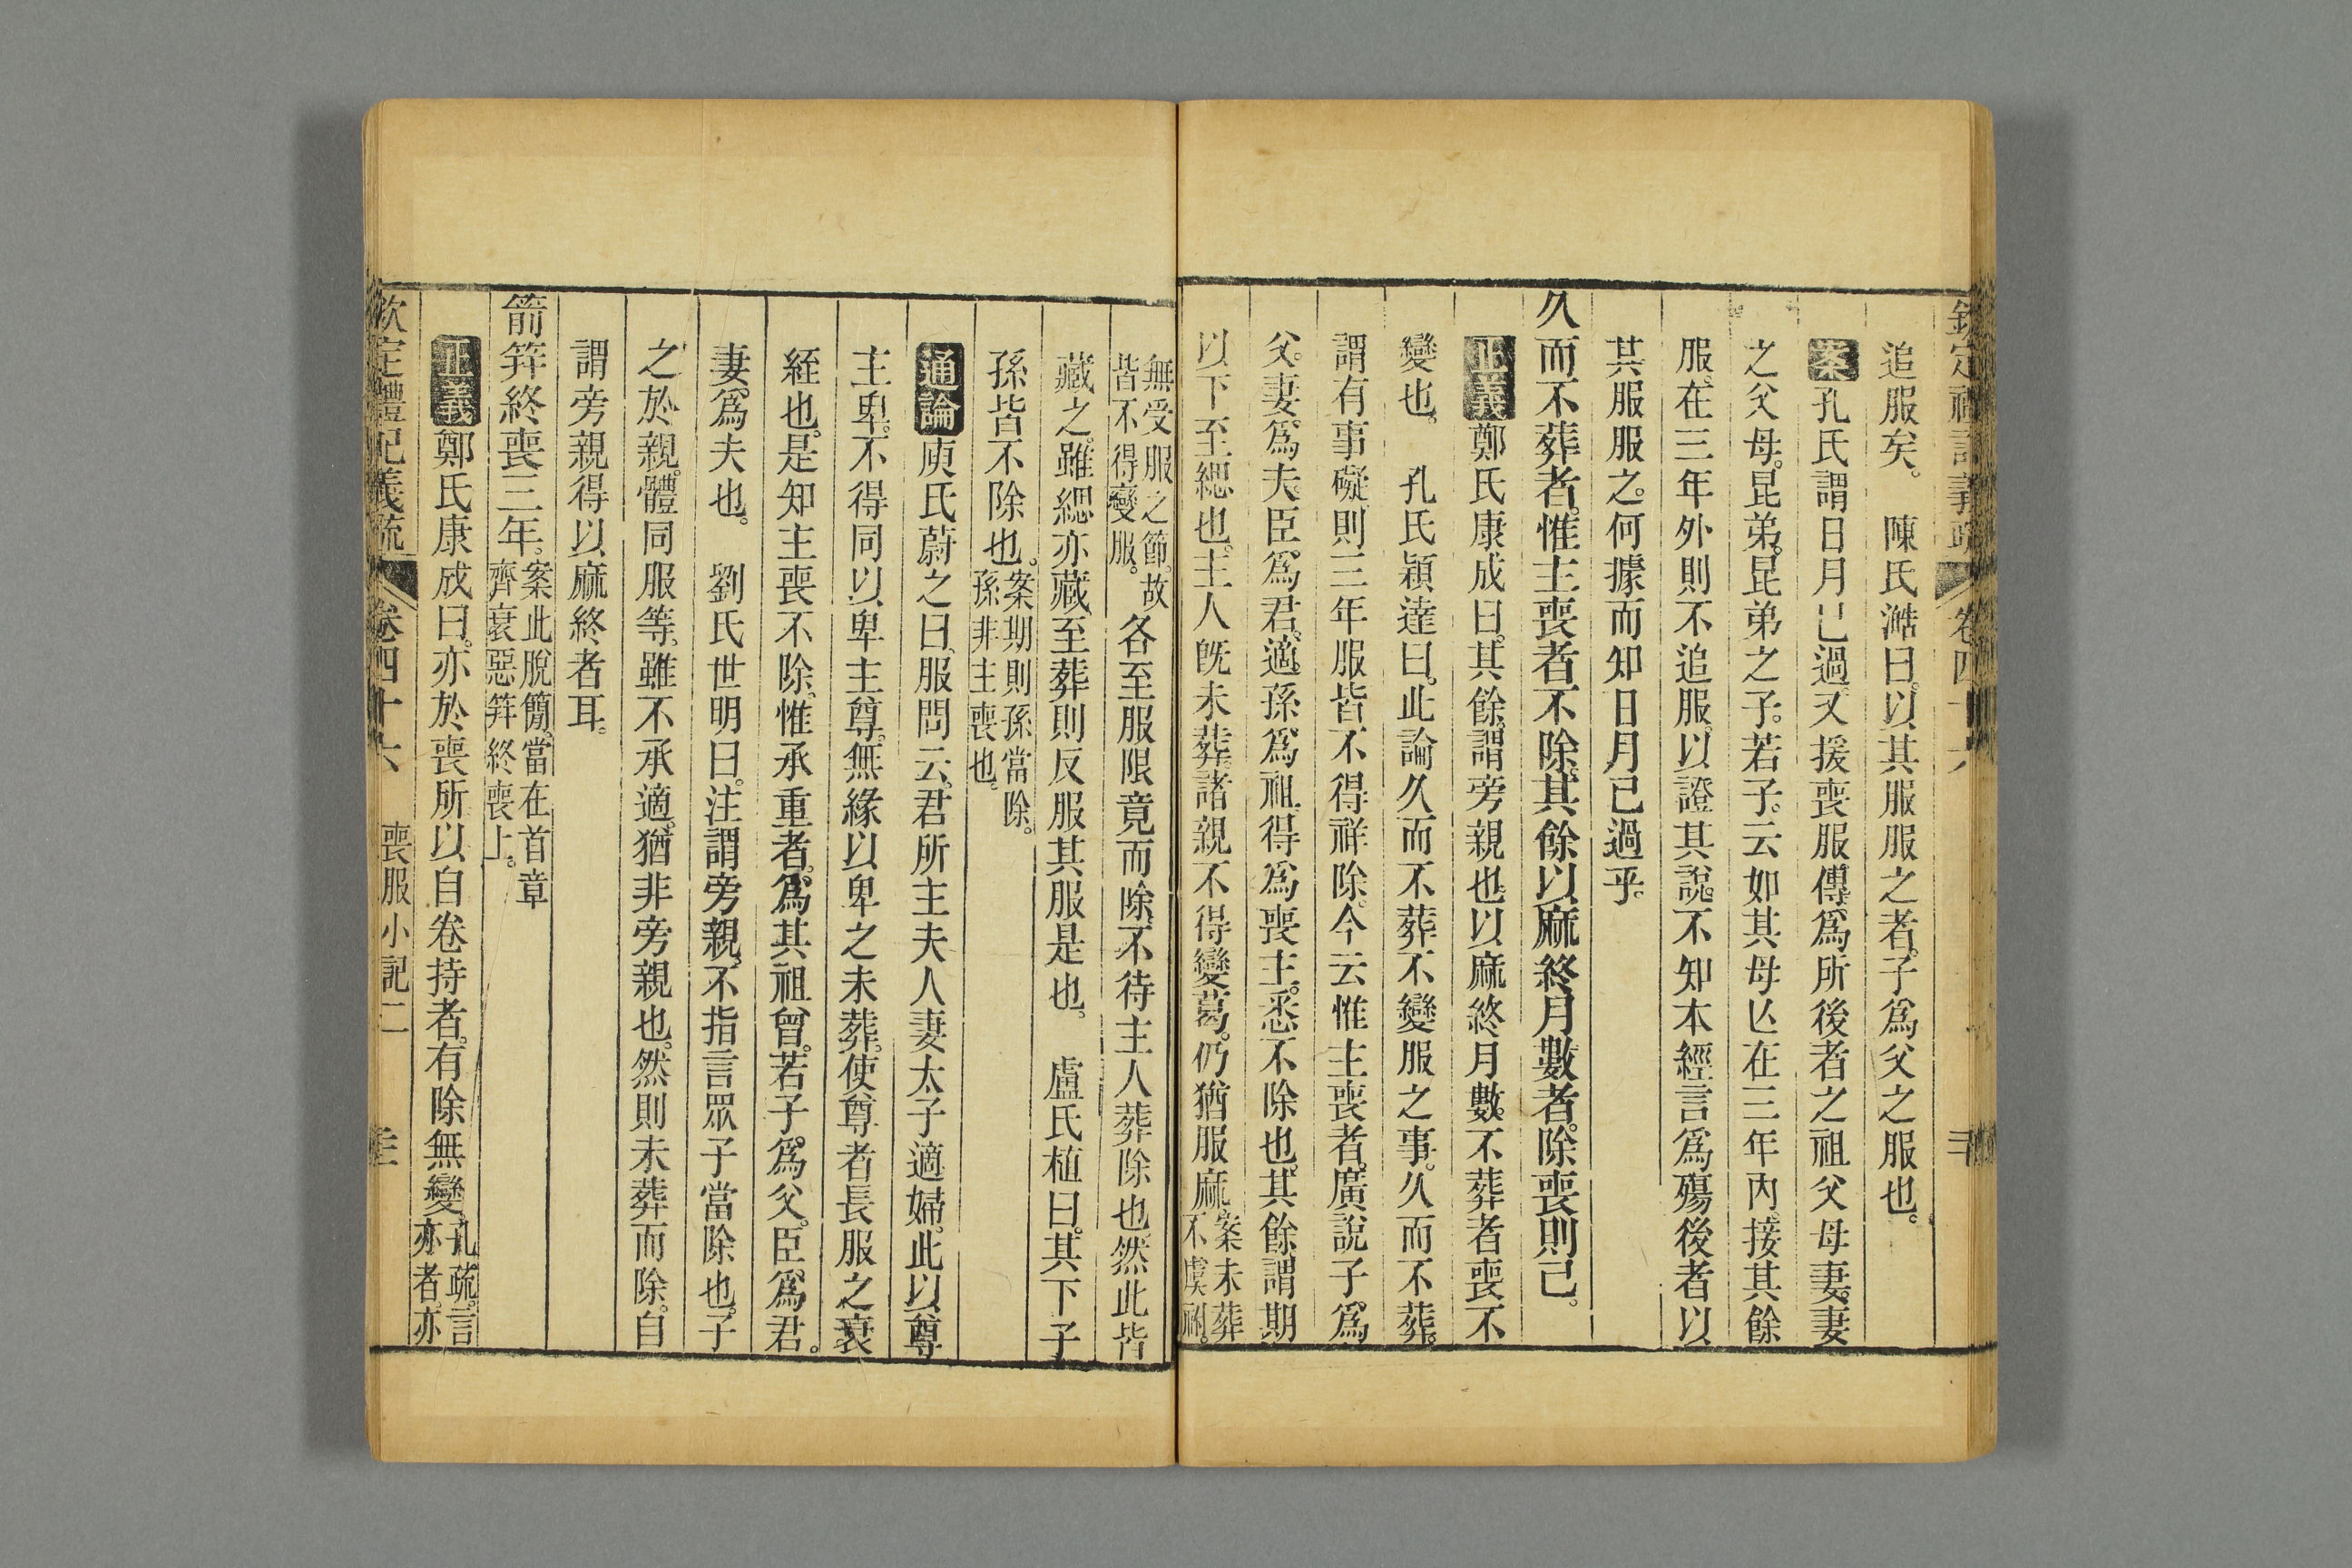 追服矣。　陳氏澔曰。以其服服之者。子爲父之服也。
案孔氏謂日月已過又援喪服傳爲所後者之祖父母妻。妻
之父母。昆弟。昆弟之子。若子。云如其母亾在三年內。接其餘
服。在三年外則不追服。以證其說。不知本經言爲殤後者以
其服服之。何據而知日月已過乎。
久而不葬者。惟主喪者不除。其餘以麻終月數者。除喪則已。
正義鄭氏康成曰。其餘。謂旁親也。以麻終月數。不葬者喪不
變也。　孔氏穎達曰。此論久而不葬不變服之事。久而不葬。
謂有事礙。則三年服皆不得祥除。今云惟主喪者。廣說子爲
父。妻爲夫。臣爲君。適孫爲祖。得爲喪主。悉不除也。其餘。謂期
以下至緦也。主人旣未葬。諸親不得變葛。仍猶服麻。案未葬不虞祔。
無受服之節。故皆不得變服。各至服限竟而除。不待主人葬除也。然此皆
藏之。雖緦亦藏。至葬則反服其服是也。　盧氏植曰。其下子
孫皆不除也。案期則孫當除。孫非主喪也。
通論庾氏蔚之曰。服問云。君所主夫人妻太子適婦。此以尊
主卑。不得同以卑主尊。無緣以卑之未葬。使尊者長服之衰
絰也。是知主喪不除。惟承重者。爲其祖曾。若子爲父。臣爲君。
妻爲夫也。　劉氏世明曰。注謂旁親。不指言眾子當除也。子
之於親。體同服等。雖不承適。猶非旁親也。然則未葬而除。自
謂旁親得以麻終者耳。
箭笄終喪三年。案此脫簡。當在首章齊衰惡笄終喪上。
正義鄭氏康成曰。亦於喪所以自卷持者。有除無變。孔疏。言亦者。亦
欽定禮記義疏　卷四十六　喪服小記二